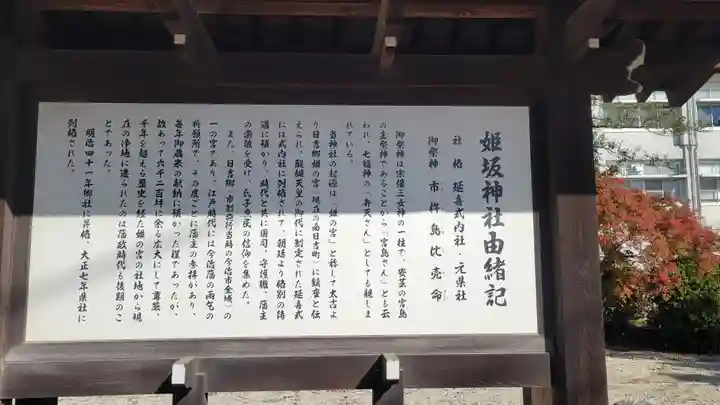 姫坂神社由緒記
社格 延喜式内社・元県社
御祭神 市杵島比売命
御祭神は宗像三女神の一柱で、安芸の宮島
の主祭神であることから「宮島さん」とも云
われ、七福神の「弁天さん」としても親しま
れている。
当神社の起源は「姫の宮」と称して太古よ
り日吉郷姫の宮(現在の南日吉町)に鎮座と伝
えられ、醍醐天皇の御代に制定された延喜式
には式内社に列格されて、朝廷より格別の待
遇に預かり、時代と共に国司、守護職、藩主
の崇敬を受け、氏子庶民の信仰を集めた。
また、日吉郷(市制施行当時の今治市全域)の
一の宮であり、江戸時代には今治藩の雨乞の
祈願所で、その度ごとに藩主の参拝があり、
毎年御蔵米の献納に預かった程であったが、
故あって六千二百坪に余る広大にして尊厳、
千年を超える歴史を経た姫の宮の社地から現
在の浄地に遷られたのは藩政時代も後期のこ
とであった。
明治四十一年郷社に昇格、大正七年県社に
列格された。